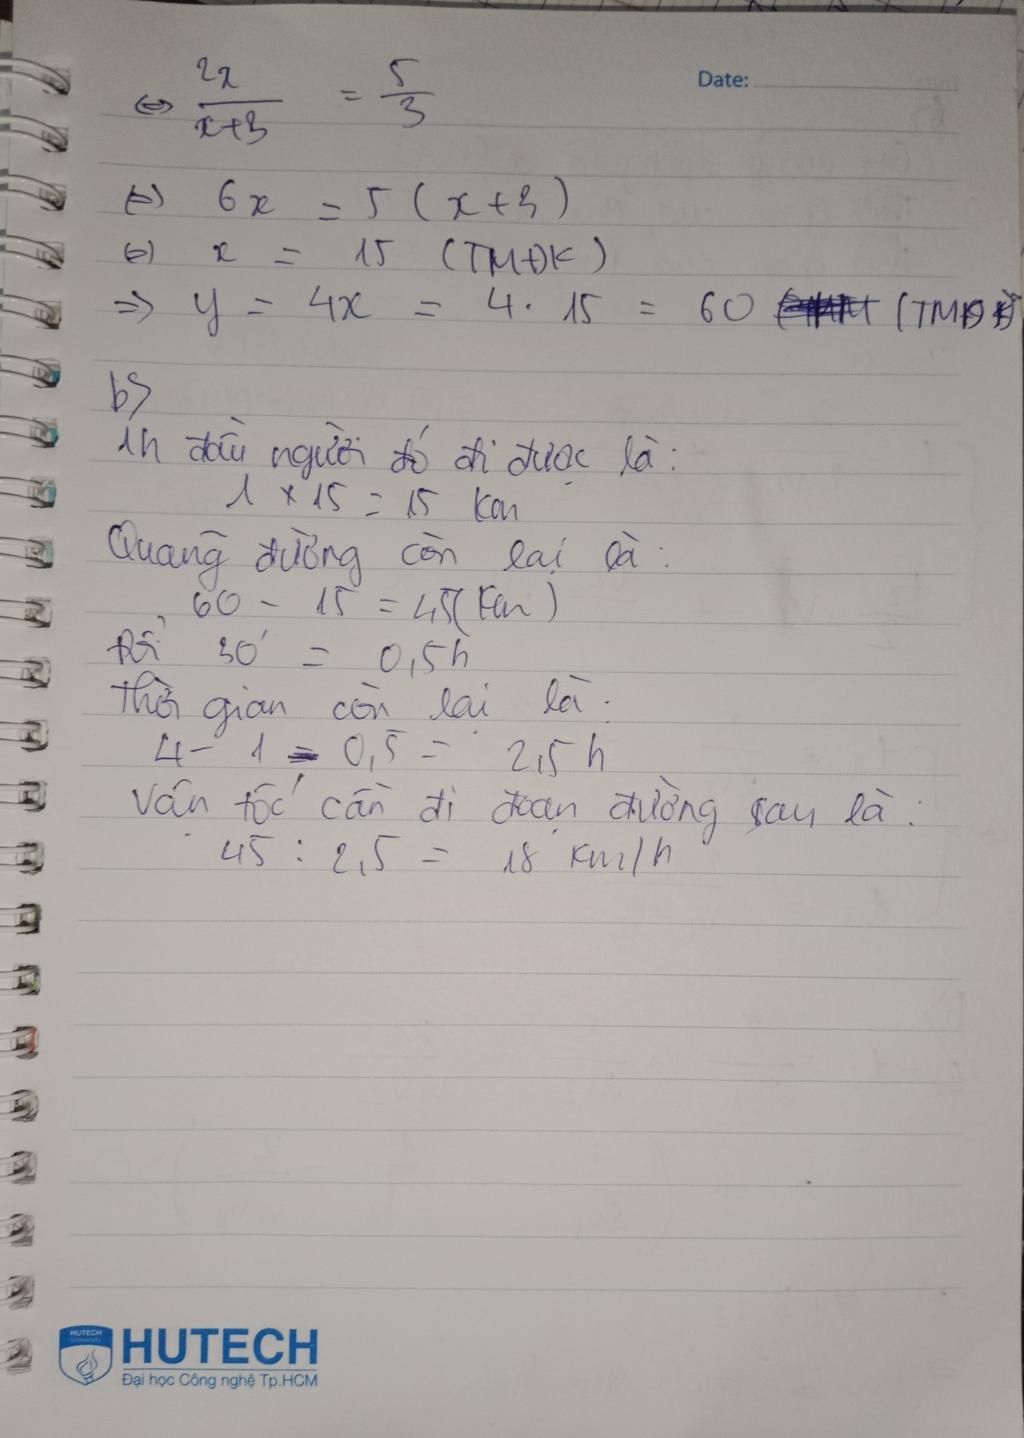 Date:
⇔ 2x/(x+3) = 5/3
⇔ 6x = 5(x+3)
⇔ x = 15 (TMĐK)
⇒ y = 4x = 4.15 = 60 (TMĐK)
b)
1h đầu người đó đi được là:
1 × 15 = 15 Km
Quãng đường còn lại là:
60 - 15 = 45(Km)
Đổi 30' = 0,5h
Thời gian còn lại là:
4 - 1 - 0,5 = 2,5 h
Vận tốc cần đi đoạn đường sau là:
45 : 2,5 = 18 Km/h
HUTECH
University
HUTECH
Đại học Công nghệ Tp.HCM